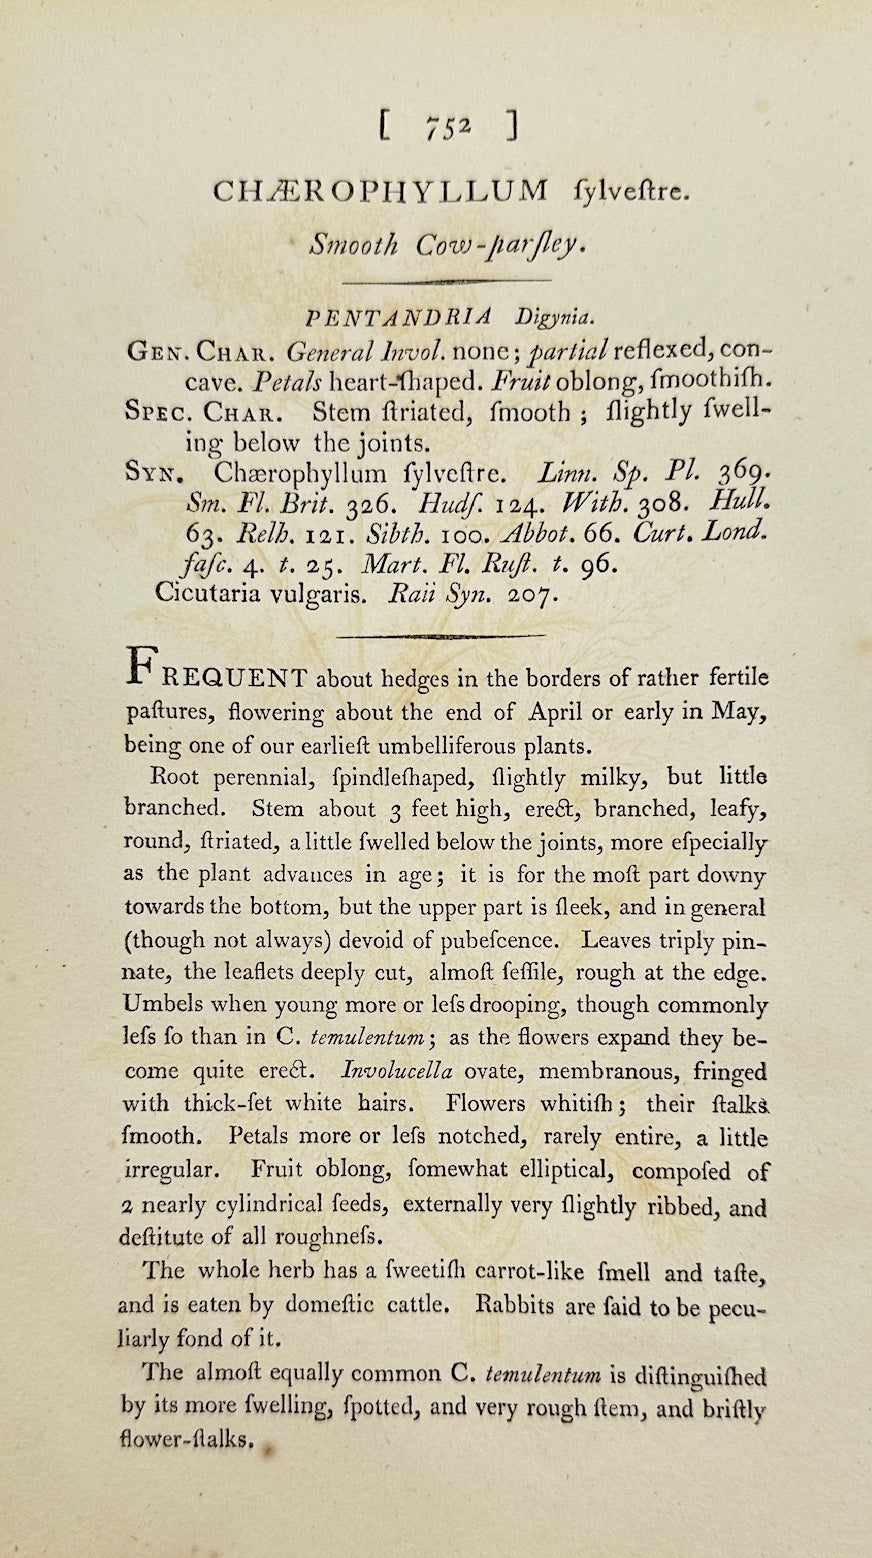 [ 752 ]
CHÆROPHYLLUM ſylveſtre.
Smooth Cow-parſley.
PENTANDRIA Digynia.
GEN. CHAR. General Invol. none; partial reflexed, con-
cave. Petals heart-ſhaped. Fruit oblong, ſmoothiſh.
SPEC. CHAR. Stem ſtriated, ſmooth; ſlightly ſwell-
ing below the joints.
SYN. Chærophyllum ſylveſtre. Linn. Sp. Pl. 369.
Sm. Fl. Brit. 326. Hudſ. 124. With. 308. Hull.
63. Relh. 121. Sibth. 100. Abbot. 66. Curt. Lond.
faſc. 4. t. 25. Mart. Fl. Ruſt. t. 96.
Cicutaria vulgaris. Raii Syn. 207.
FREQUENT about hedges in the borders of rather fertile
paſtures, flowering about the end of April or early in May,
being one of our earlieſt umbelliferous plants.
Root perennial, ſpindleſhaped, ſlightly milky, but little
branched. Stem about 3 feet high, erect, branched, leafy,
round, ſtriated, a little ſwelled below the joints, more eſpecially
as the plant advances in age; it is for the moſt part downy
towards the bottom, but the upper part is ſleek, and in general
(though not always) devoid of pubeſcence. Leaves triply pin-
nate, the leaflets deeply cut, almoſt ſeſſile, rough at the edge.
Umbels when young more or leſs drooping, though commonly
leſs ſo than in C. temulentum; as the flowers expand they be-
come quite erect. Involucella ovate, membranous, fringed
with thick-ſet white hairs. Flowers whitiſh; their ſtalks
ſmooth. Petals more or leſs notched, rarely entire, a little
irregular. Fruit oblong, ſomewhat elliptical, compoſed of
2 nearly cylindrical ſeeds, externally very ſlightly ribbed, and
deſtitute of all roughneſs.
The whole herb has a ſweetiſh carrot-like ſmell and taſte,
and is eaten by domeſtic cattle. Rabbits are ſaid to be pecu-
liarly fond of it.
The almoſt equally common C. temulentum is diſtinguiſhed
by its more ſwelling, ſpotted, and very rough ſtem, and briſtly
flower-ſtalks.